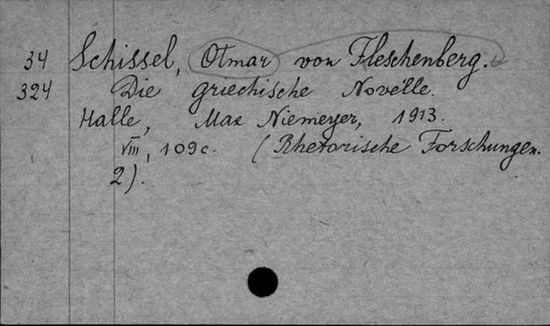 34 Schissel, Otmar von Fleschenberg.
324 Die griechische Novelle.
Halle, Max Niemeyer, 1913.
VIII, 109 c. (Rhetorische Forschungen.
2).